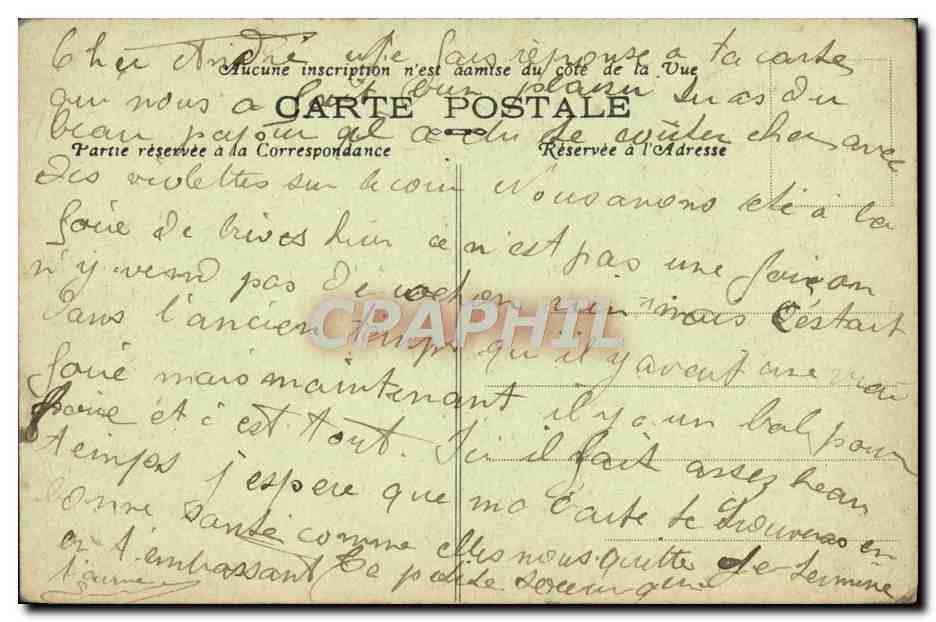 Cher André je fais réponse a ta carte
Aucune inscription n'est admise du côté de la Vue
qui nous a fait bien plaisir tu as du
CARTE POSTALE
beau papier il a du te coûter cher avec
Partie réservée à la Correspondance
Réservée à l'Adresse
des violettes sur le coin Nous avons été à la
foire de brives hier ce n'est pas une foire on
n'y vend pas de cochon rien mais C'était
CRAPHIL
Dans l'ancien temps qu'il y avait une vrai
foire mais maintenant il y a un bal pour
foire et c'est tout. Ici il fait assez beau
temps j'espère que ma Carte te trouveras en
bonne santé comme elles nous quitte Je termine
en t'embrassant Ta petite soeur qui
t'aime